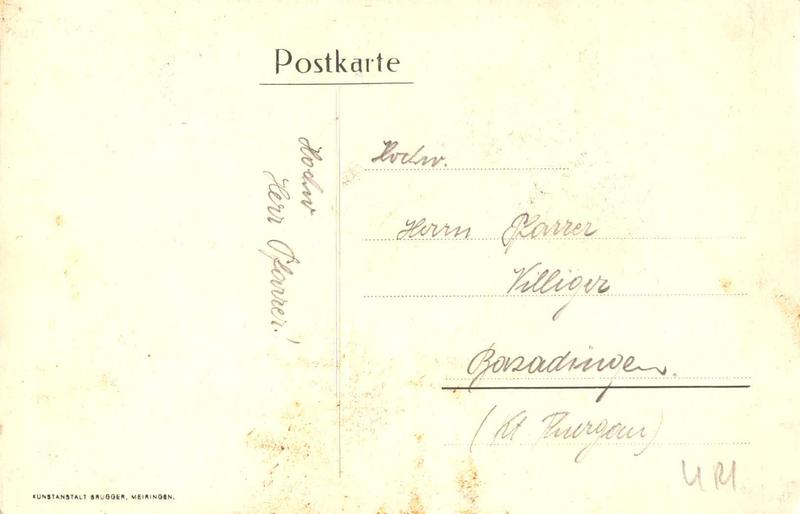 Postkarte
Hochw
Herr Pfarrer!
Hochw.
Herrn Pfarrer
Villiger
Basadingen.
(Kt Thurgau)
KUNSTANSTALT BRUGGER, MEIRINGEN.